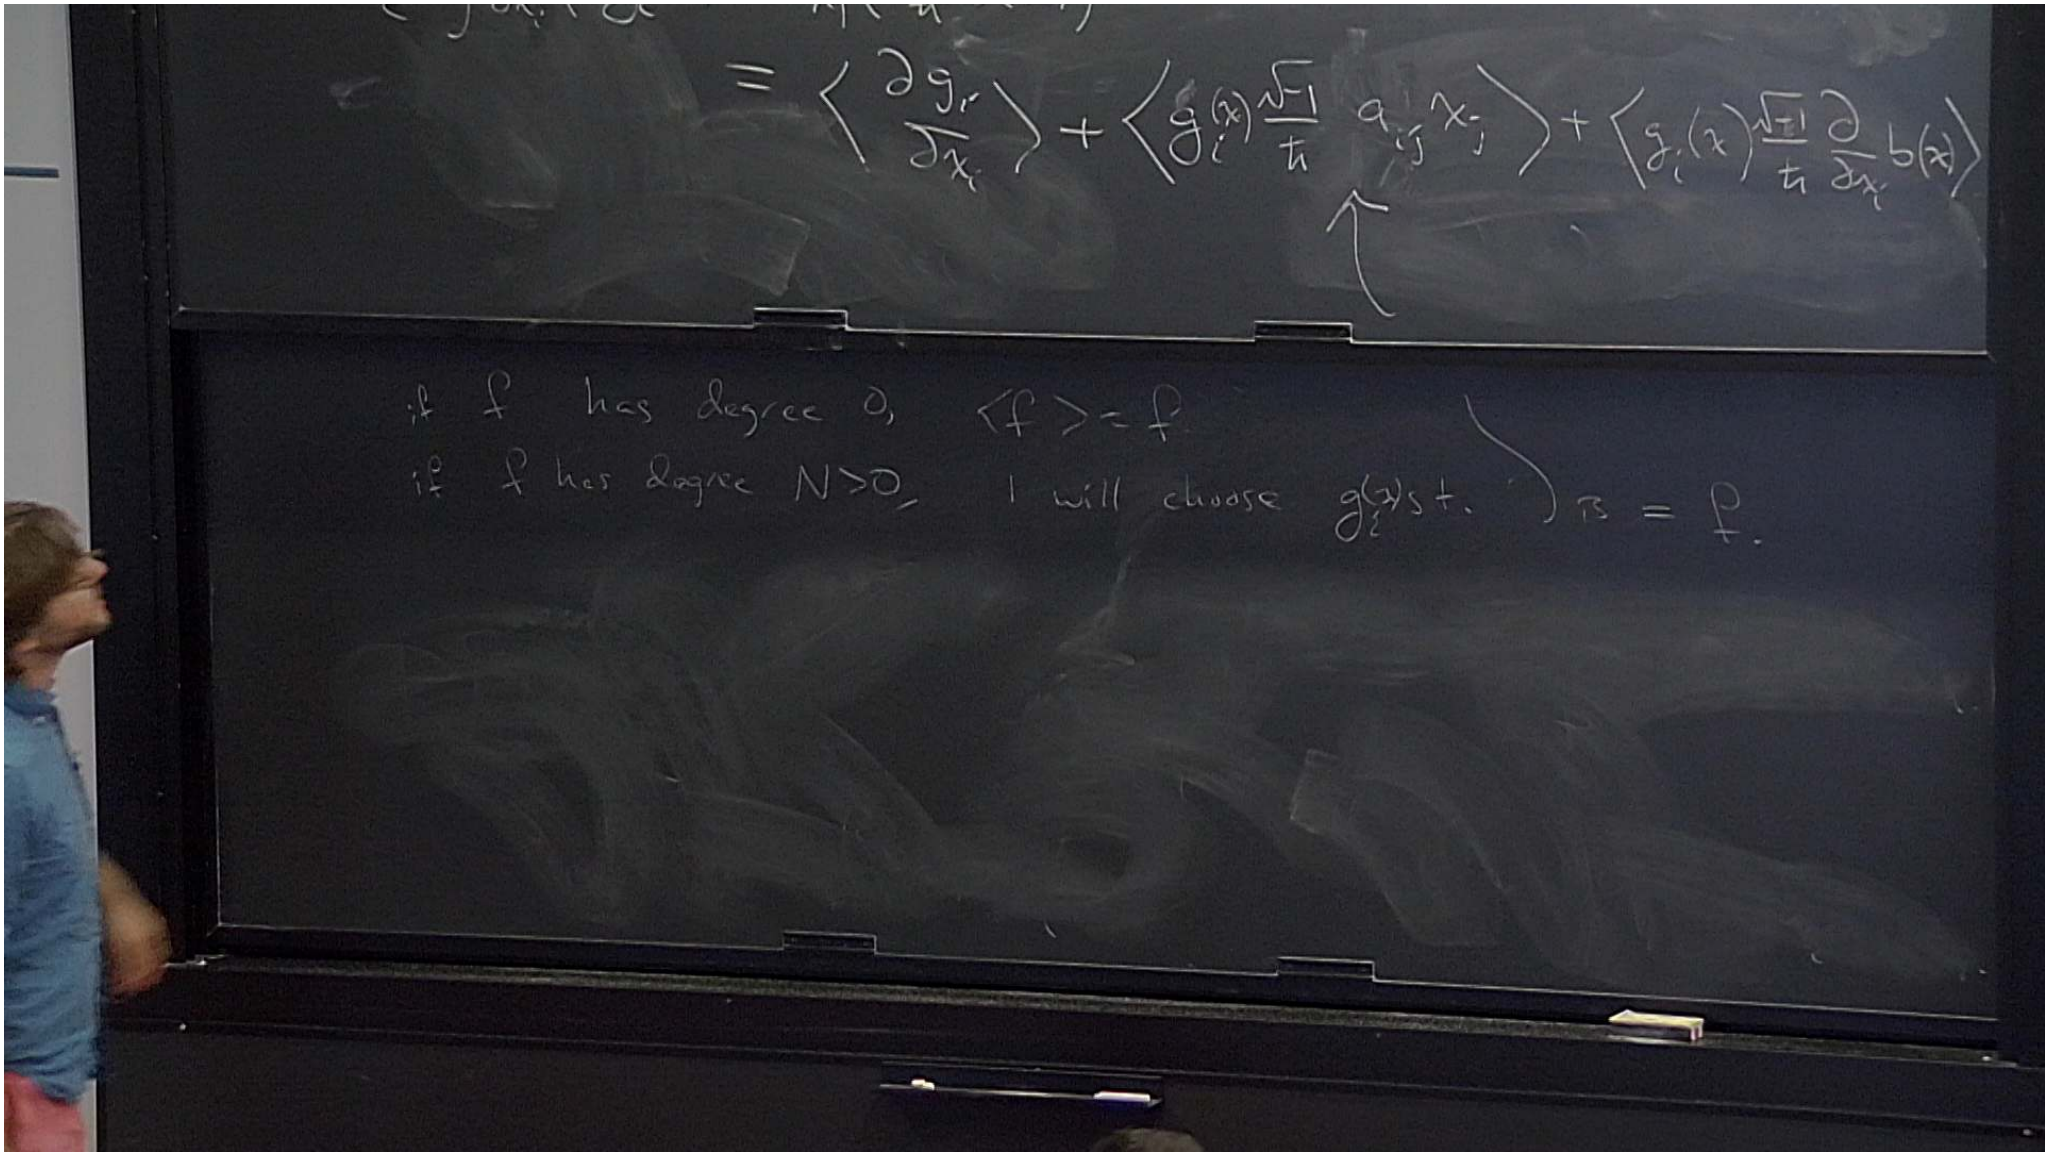 = ⟨∂gᵢ/∂xᵢ⟩ + ⟨gᵢ(x) √-1/ħ aᵢⱼ xⱼ⟩ + ⟨gᵢ(x) √-1/ħ ∂/∂xᵢ b(x)⟩
if f has degree 0, <f> = f.
if f has degree N>0, I will choose gᵢ(x) s.t. is = f.